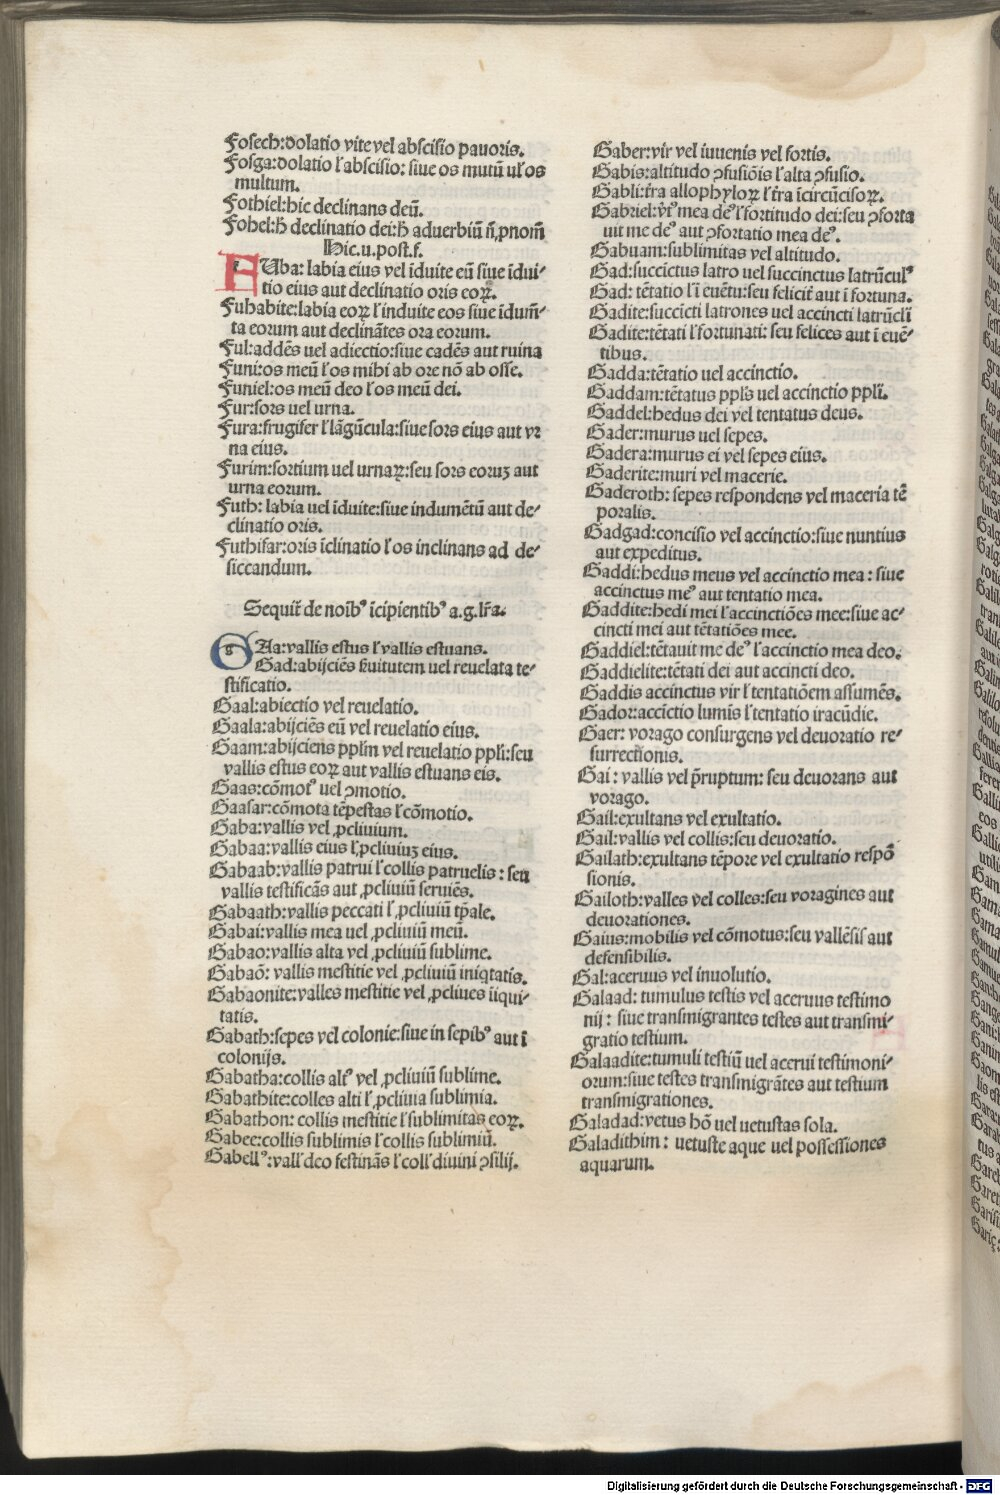 Fosech:dolatio vite vel abscisio pauoris.
Fosga:dolatio ł abscisio: siue os mutū uł os
multum.
Fothiel:hic declinans deū.
Fohel:ħ declinatio dei:ħ aduerbiū ñ,ꝓnom̄
Hic.u.post.f.
FUba: labia eius vel īduite eū siue īdui⸗
tio eius aut declinatio oris eoꝝ.
Fuhabite:labia eoꝝ ł induite eos siue īdum̄⸗
ta eorum aut declinātes ora eorum.
Ful:addēs uel adiectio:siue cadēs aut ruina
Funi:os meū ł os mihi ab ore nō ab osse.
Funiel:os meū deo ł os meū dei.
Fur:sors uel urna.
Fura:frugifer ł lāgūcula:siue sors eius aut vr
na eius.
Furim:sortium uel urnaꝝ:seu sors eoruꝫ aut
urna eorum.
Futh: labia uel īduite:siue indumētū aut de⸗
clinatio oris.
Futhifar:oris īclinatio ł os inclinans ad de⸗
siccandum.
Sequit̄ de noīb⁹ īcipientib⁹ a.g.lr̄a.
GAa:vallis estus ł vallis estuans.
Gad:abijciēs ẜuitutem uel reuelata te⸗
stificatio.
Gaal:abiectio vel reuelatio.
Gaala:abijciēs eū vel reuelatio eius.
Gaam:abijciens ppl̄m vel reuelatio ppl̄i:seu
vallis estus eoꝝ aut vallis estuans eis.
Gaas:cōmot⁹ uel ↄmotio.
Gaasar:cōmota tēpestas ł cōmotio.
Gaba:vallis vel ꝓcliuium.
Gabaa:vallis eius ł ꝓcliuiuꝫ eius.
Gabaab:vallis patrui ł collis patruelis: seu
vallis testificās aut ꝓcliuiū seruiēs.
Gabaath:vallis peccati ł ꝓcliuiū tp̄ale.
Gabai:vallis mea uel ꝓcliuiū meū.
Gabao:vallis alta vel ꝓcliuiū sublime.
Gabaō: vallis mestitie vel ꝓcliuiū iniqtatis.
Gabaonite:valles mestitie vel ꝓcliues īiqui⸗
tatis.
Gabath:sepes vel colonie:siue in sepib⁹ aut ī
colonijs.
Gabatha:collis alt⁹ vel ꝓcliuiū sublime.
Gabathite:colles alti ł ꝓcliuia sublimia.
Gabathon: collis mestitie ł sublimitas eoꝝ.
Gabee:collis sublimis ł collis sublimiū.
Gabell⁹:vall̄ deo festinās ł coll̄ diuini ↄsilij.
Gaber:vir vel iuuenis vel fortis.
Gabis:altitudo ↄfusiōis ł alta ↄfusio.
Gabli:tr̄a allophyloꝝ ł tr̄a īcircūcisoꝝ.
Gabriel:v̄t⁹ mea de⁹ ł fortitudo dei:seu ↄforta
uit me de⁹ aut ↄfortatio mea de⁹.
Gabuam:sublimitas vel altitudo.
Gad:succictus latro uel succinctus latrūcul⁹
Gad: tētatio ł ī euētu:seu felicit̄ aut ī fortuna.
Gadite:succicti latrones uel accincti latrūcl̄i
Gadite:tētati ł fortunati: seu felices aut ī euē⸗
tibus.
Gadda:tētatio uel accinctio.
Gaddam:tētatus ppl̄s uel accinctio ppl̄i.
Gaddel:hedus dei vel tentatus deus.
Gader:murus uel sepes.
Gadera:murus ei vel sepes eius.
Gaderite:muri vel macerie.
Gaderoth: sepes respondens vel maceria tē
poralis.
Gadgad:concisio vel accinctio:siue nuntius
aut expeditus.
Gaddi:hedus meus vel accinctio mea: siue
accinctus me⁹ aut tentatio mea.
Gaddite:hedi mei ł accinctiōes mee:siue ac⸗
cincti mei aut tētatiōes mee.
Gaddiel:tētauit me de⁹ ł accinctio mea deo.
Gaddielite:tētati dei aut accincti deo.
Gaddis accinctus vir ł tentatiōem assumēs.
Gador:accīctio lumīs ł tentatio iracūdie.
Gaer: vorago consurgens vel deuoratio re⸗
surrectionis.
Gai: vallis vel p̄ruptum: seu deuorans aut
vorago.
Gail:exultans vel exultatio.
Gail:vallis vel collis:seu deuoratio.
Gailath:exultans tēpore vel exultatio respō
sionis.
Gailoth:valles vel colles:seu voragines aut
deuorationes.
Gaius:mobilis vel cōmotus:seu vallēsis aut
defensibilis.
Gal:aceruus vel inuolutio.
Galaad: tumulus testis vel aceruus testimo
nij: siue transmigrantes testes aut transmi⸗
gratio testium.
Galaadite:tumuli testiū uel acerui testimoni⸗
orum:siue testes transmigrātes aut testium
transmigrationes.
Galadad:vetus hō uel uetustas sola.
Galadithim: uetuste aque uel possessiones
aquarum.
Digitalisierung gefördert durch die Deutsche Forschungsgemeinschaft - DFG